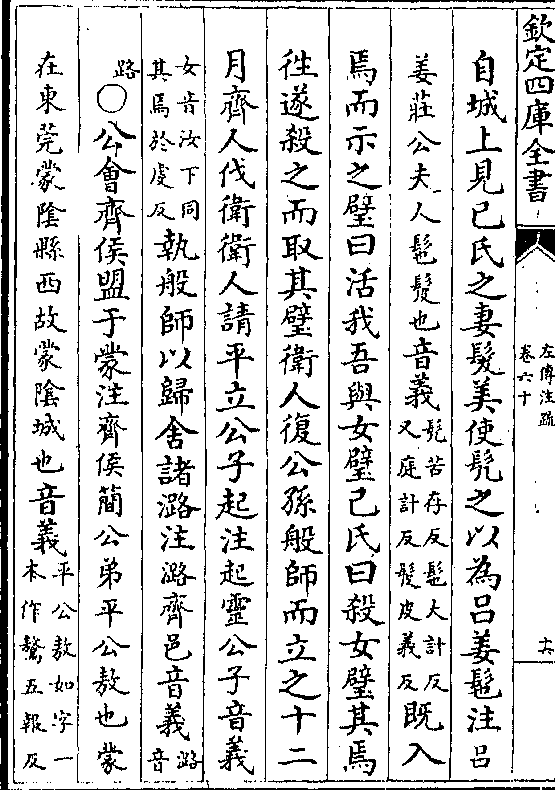 欽定四庫全書
左傳注疏
卷六十
十六
自城上見己氏之妻髮美使髡之以為呂姜髢注呂
姜莊公夫人髢髲也音義髡苦存反髢大計反
又庭計反髲皮義反既入
焉而示之璧曰活我吾與女璧己氏曰殺女璧其焉
往遂殺之而取其璧衛人復公孫般師而立之十二
月齊人伐衛衛人請平立公子起注起靈公子音義
女音汝下同
其焉於䖍反執般師以歸舍諸潞注潞齊邑音義潞
音
路○公會齊侯盟于蒙注齊侯簡公弟平公敖也蒙
在東莞蒙陰縣西故蒙陰城也音義平公敖如字一
本作驁五報反